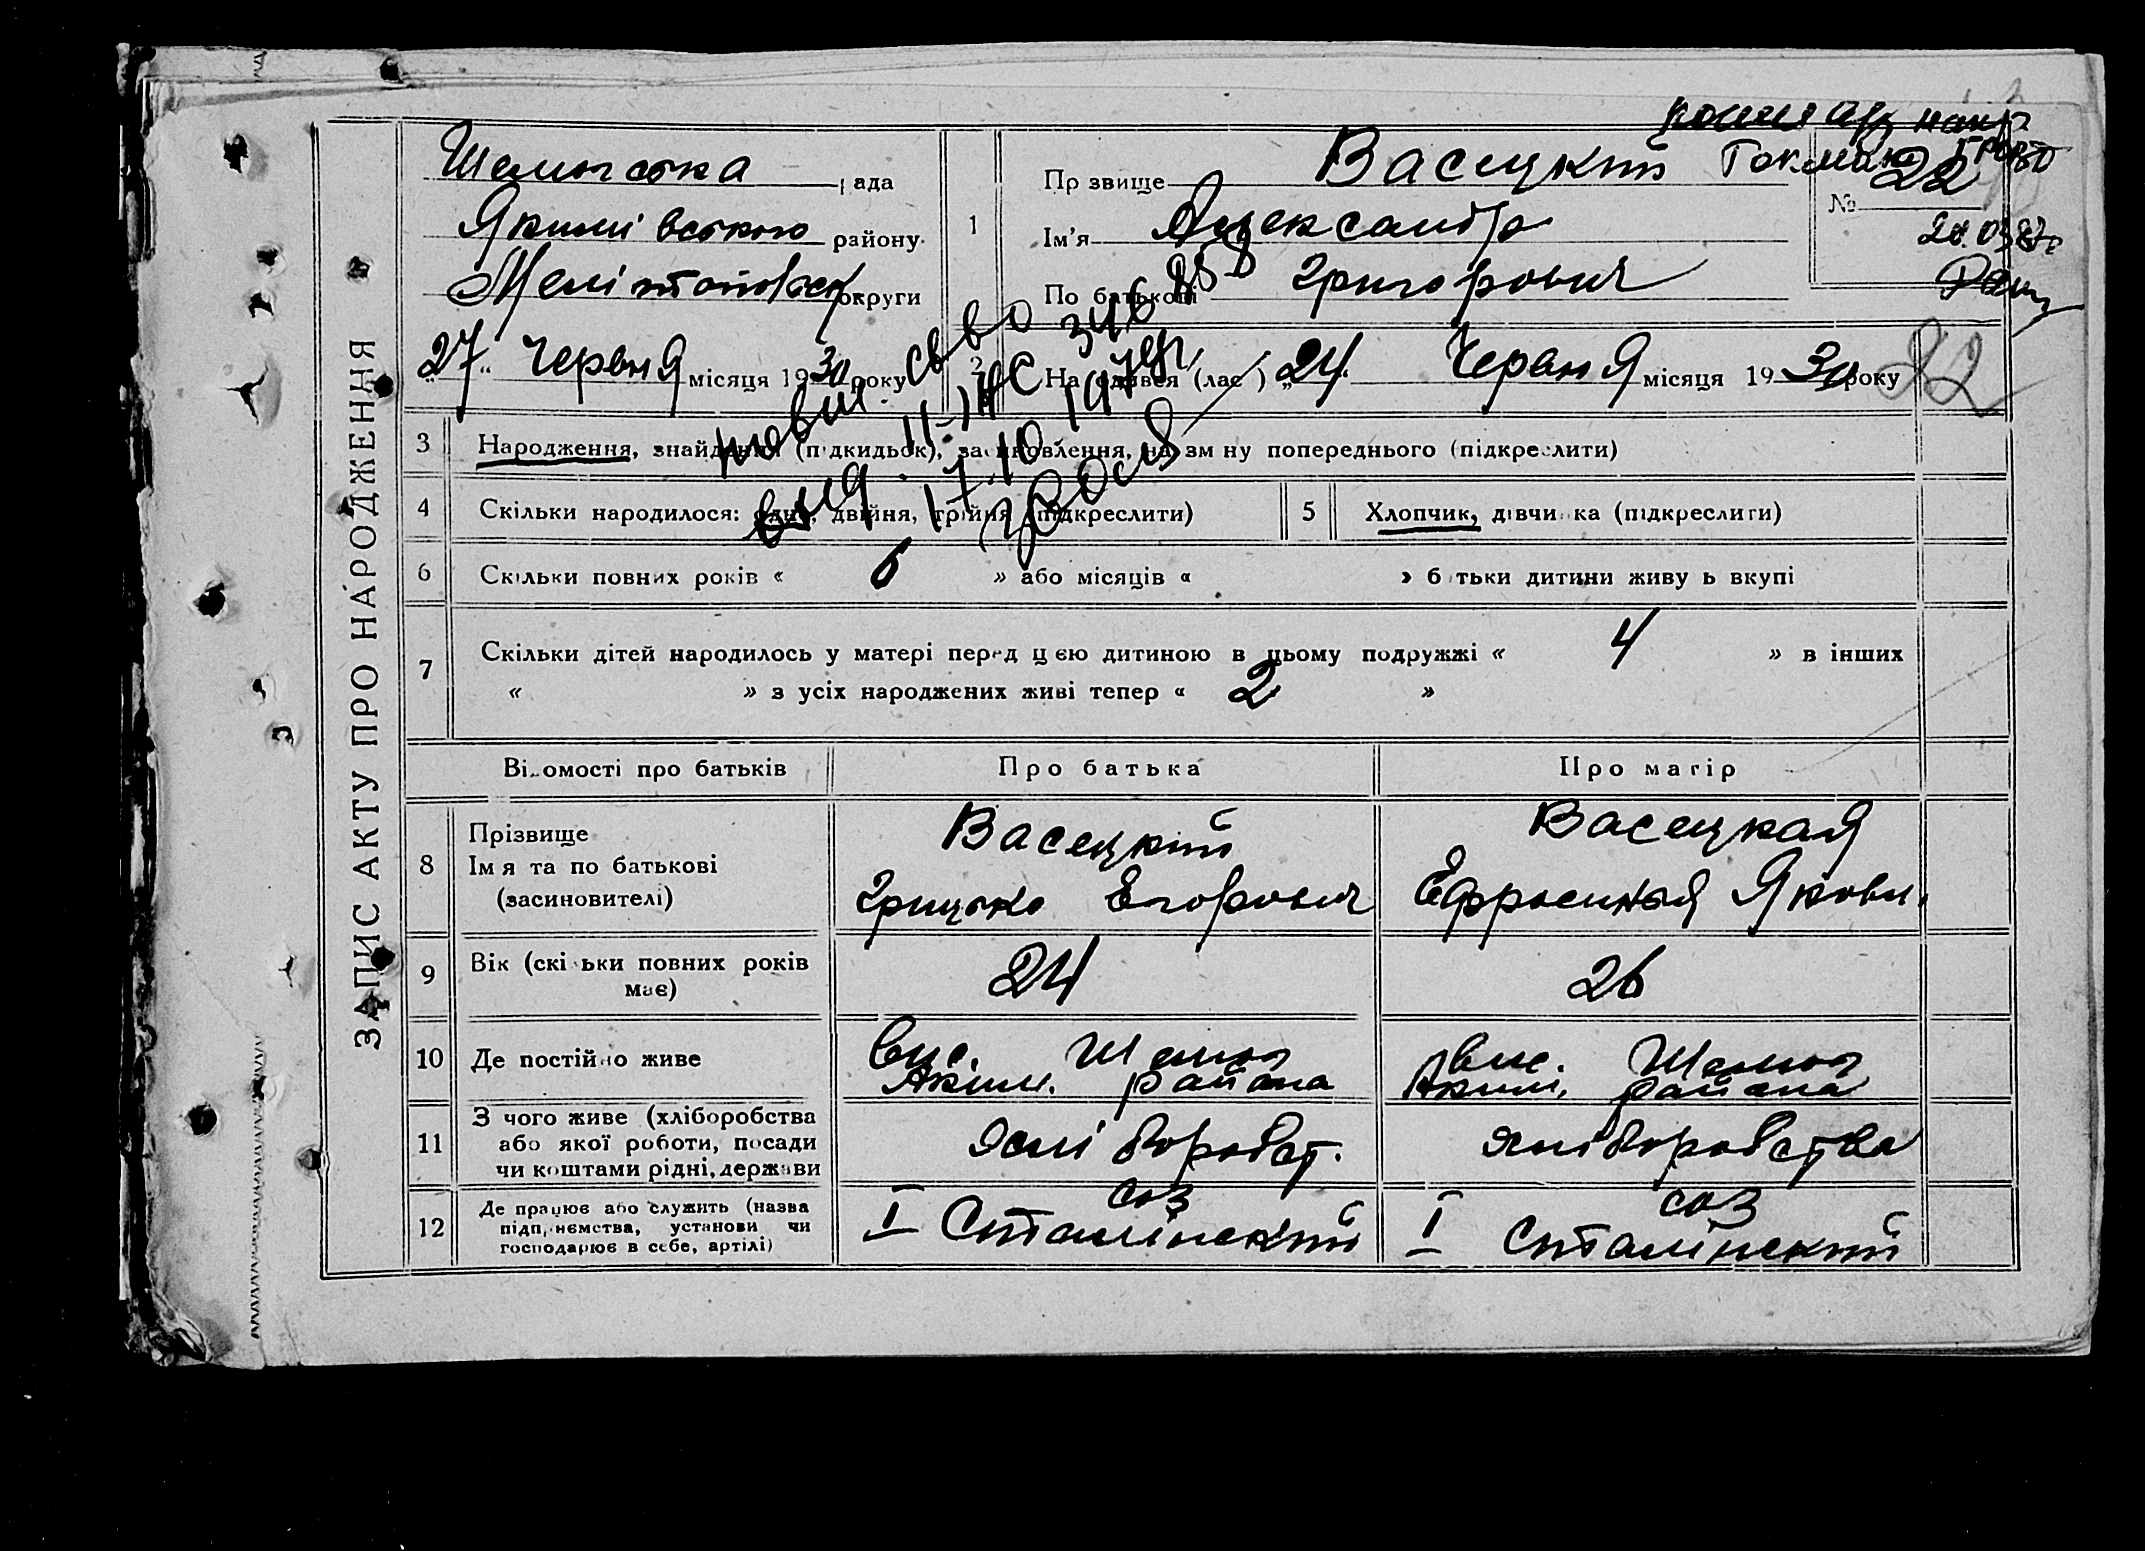 ЗАПИС АКТУ ПРО НАРОДЖЕННЯ
Шелюгська рада
Якимівського району
Мелітопольск округи
„27“ Червня місяця 1930 року
1
Прізвище Васецкий
Ім'я Александр
По батькові Григорович
№ 22
Токмак
20.03.87г
22
2
Народився (лась) „24 Червня місяця 1930 року
повт. св во
II-ЖС 346 858
выд. 17.10 1974г
3 Народження, знайдення (підкидьок), засиновлення, на зміну попереднього (підкреслити)
4 Скільки народилося: одно, двійня, трійня (підкреслити)
5 Хлопчик, дівчинка (підкреслити)
6 Скільки повних років « 6 » або місяців « » батьки дитини живуть вкупі
7 Скільки дітей народилось у матері перед цією дитиною в цьому подружжі « 4 » в інших
« » з усіх народжених живі тепер « 2 »
Відомості про батьків
Про батька
Про матір
8 Прізвище
Ім я та по батькові
(засиновителі)
Васецкий
Грицько Егорович
Васецкая
Ефросинья Яковл.
9 Вік (скільки повних років
має)
24
26
10 Де постійно живе
вис. Шелюг
Яким. района
вис. Шелюг
Яким. района
11 З чого живе (хліборобства
або якої роботи, посади
чи коштами рідні, держави
хліборобст.
хліборобства
12 Де працює або служить (назва
підприємства, установи чи
господарює в себе, артілі)
соз
I Сталінский
соз
I Сталінский